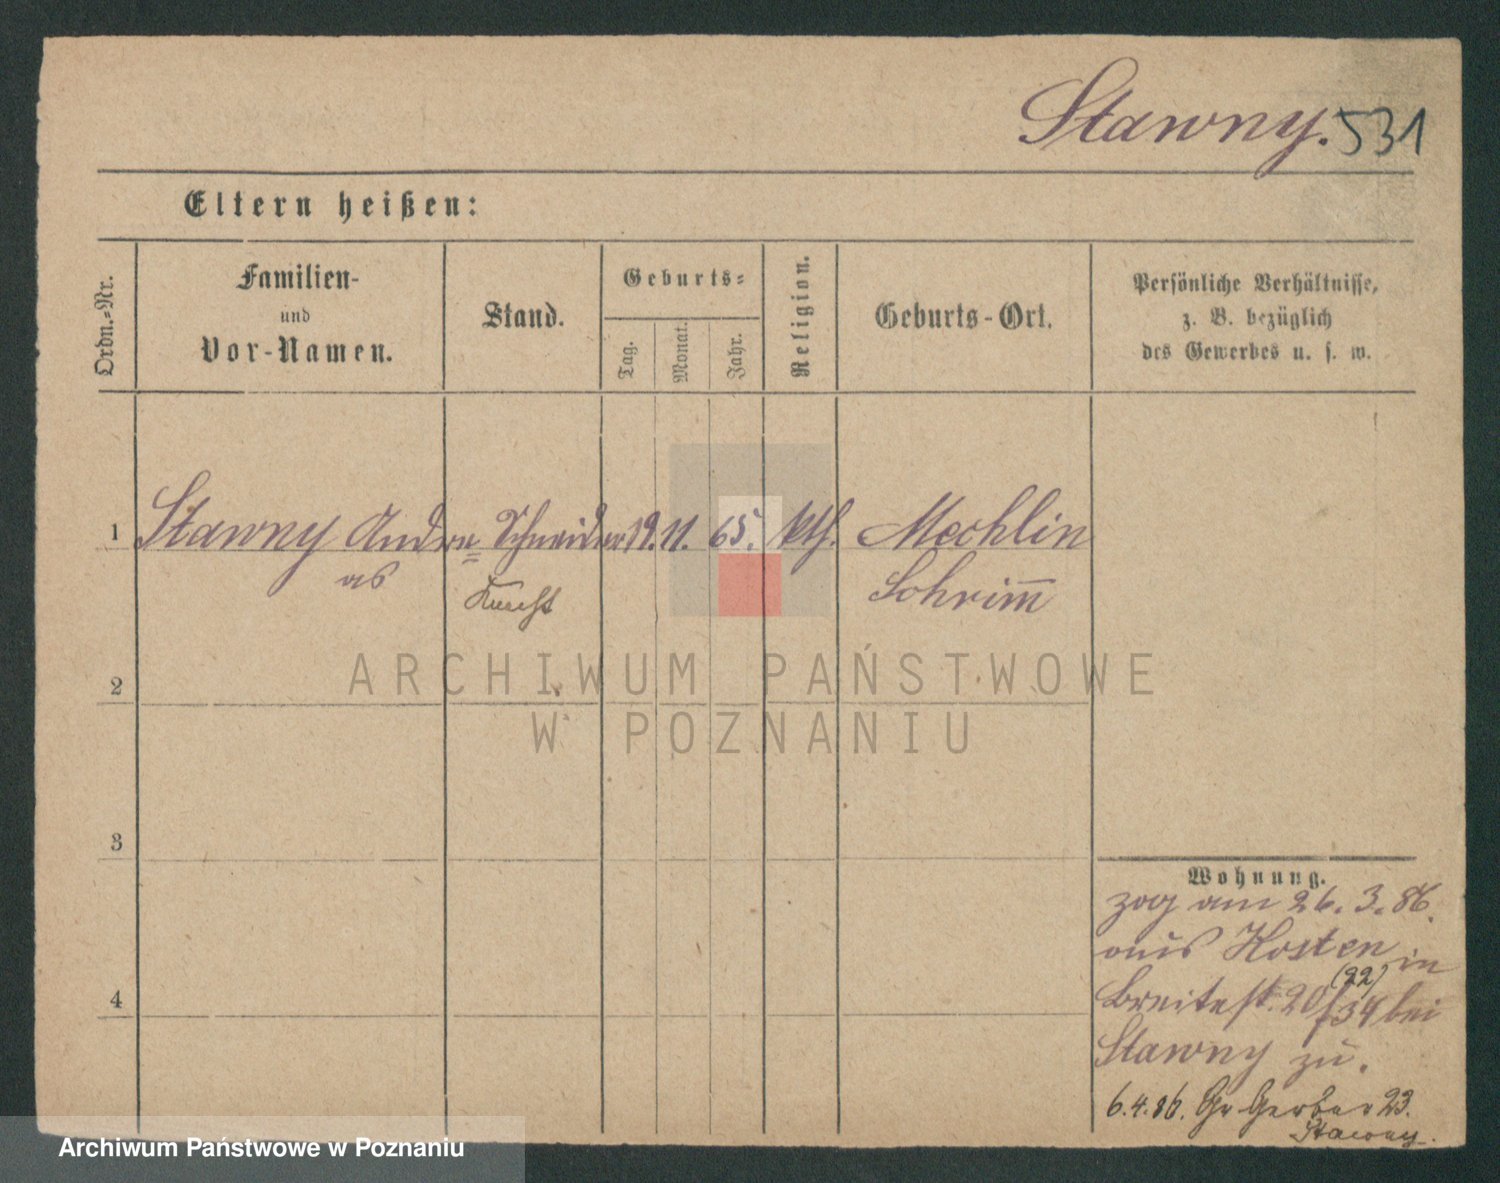 Stawny. 531
Eltern heißen:
Ordn.-Nr.
Familien-
und
Vor-Namen.
Stand.
Geburts-
Tag.
Monat.
Jahr.
Religion.
Geburts-Ort.
Persönliche Verhältnisse,
z. B. bezüglich
des Gewerbes u. s. w.
1 Stawny Andre Schneider 19. 11. 65. kth. Mechlin
as Knecht Schrim̅
ARCHIWUM PAŃSTWOWE
W POZNANIU
2
3
4
Wohnung.
zog am 26. 3. 86.
aus Kosten in
(22)
Breitestr. 20/34 bei
Stawny zu.
6.4.86. Gr Gerber 23.
Stawny.
Archiwum Państwowe w Poznaniu